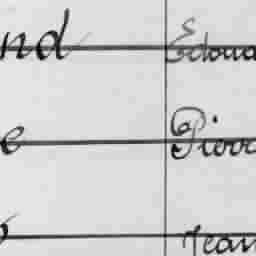 nd Edoua
e Pierr
Jean